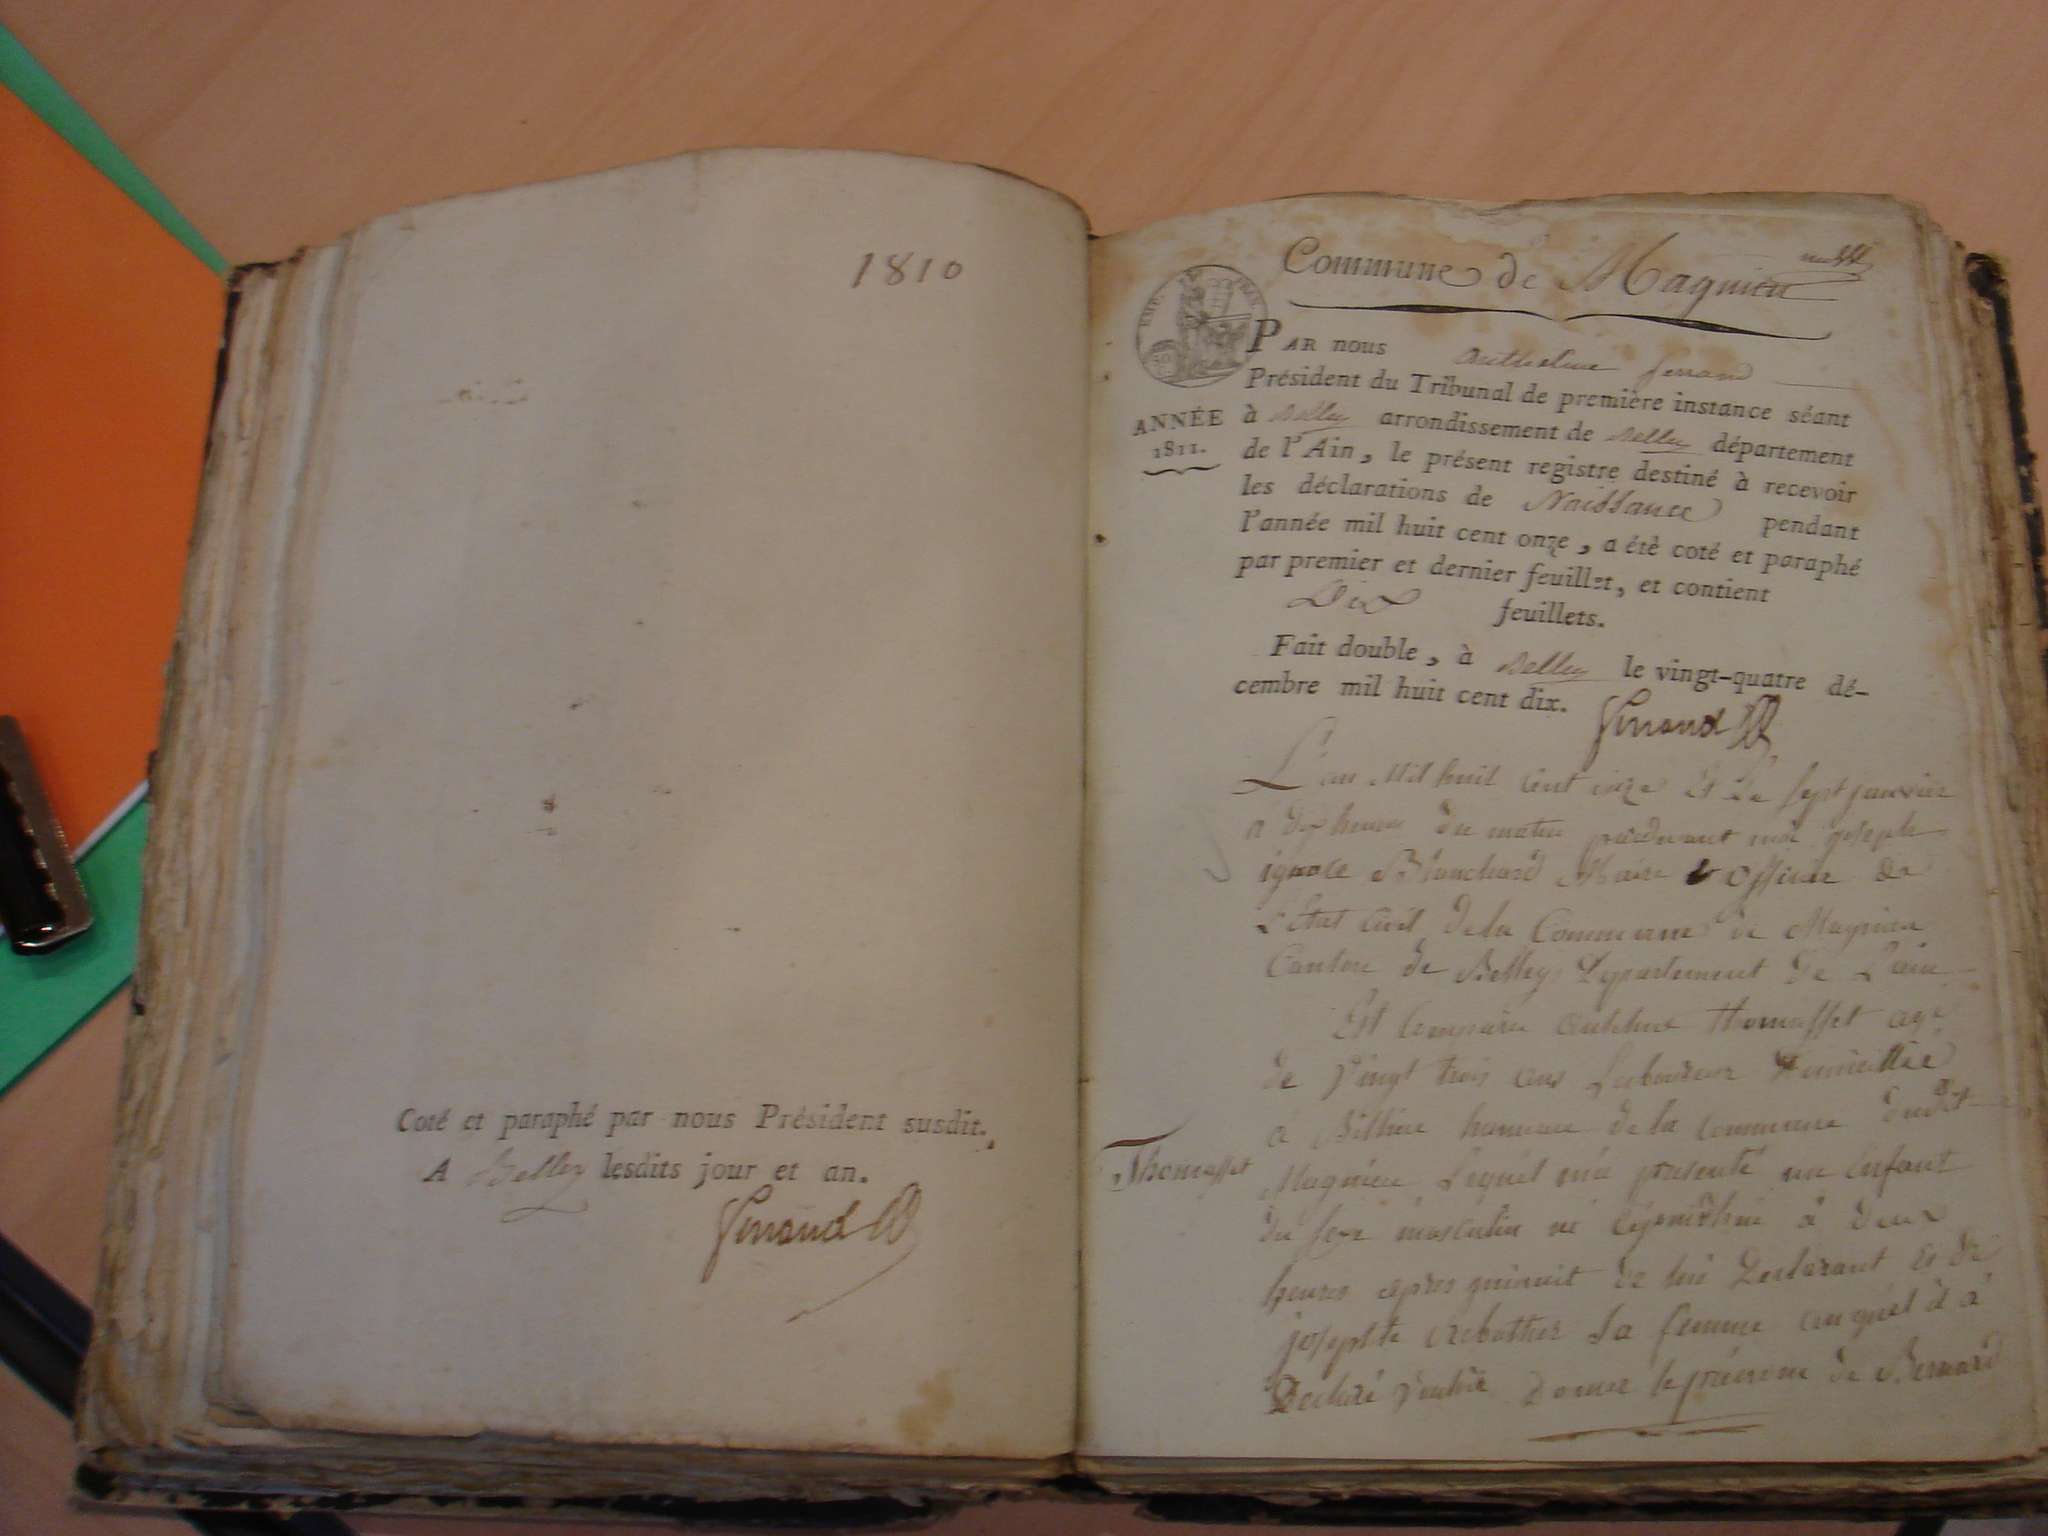 1810
Coté et paraphé par nous Président susdit.
A Belley lesdits jour et an.
Commune de Magnieu
EMP. FRAN.
ANNÉE
1811.
PAR nous Anthelme
Président du Tribunal de première instance séant
à Belley arrondissement de Belley département
de l'Ain, le présent registre destiné à recevoir
les déclarations de Naissance pendant
l'année mil huit cent onze, a étè coté et paraphé
par premier et dernier feuillet, et contient
Dix feuillets.
Fait double, à Belley le vingt-quatre dé-
cembre mil huit cent dix.
L'an Mil huit cent onze Et Le sept janvier
a dix heures du matin pardevant moi joseph
ignace Blanchard Maire & officier de
L'Etat Civil de la Commune de Magnieu
Canton de Belley Departement De L'ain
Est Comparu anthelme thomasset agé
de Vingt trois ans Laboureur Domicillié
à hameau de la Commune dudit
Thomasset
Magnieu Lequel m'a presenté un Enfant
du sexe masculin né à deux
heures apres minuit de lui Declarant et de
josephte sa femme auquel il a
Declaré Vouloir Donner le prénom de Bernard